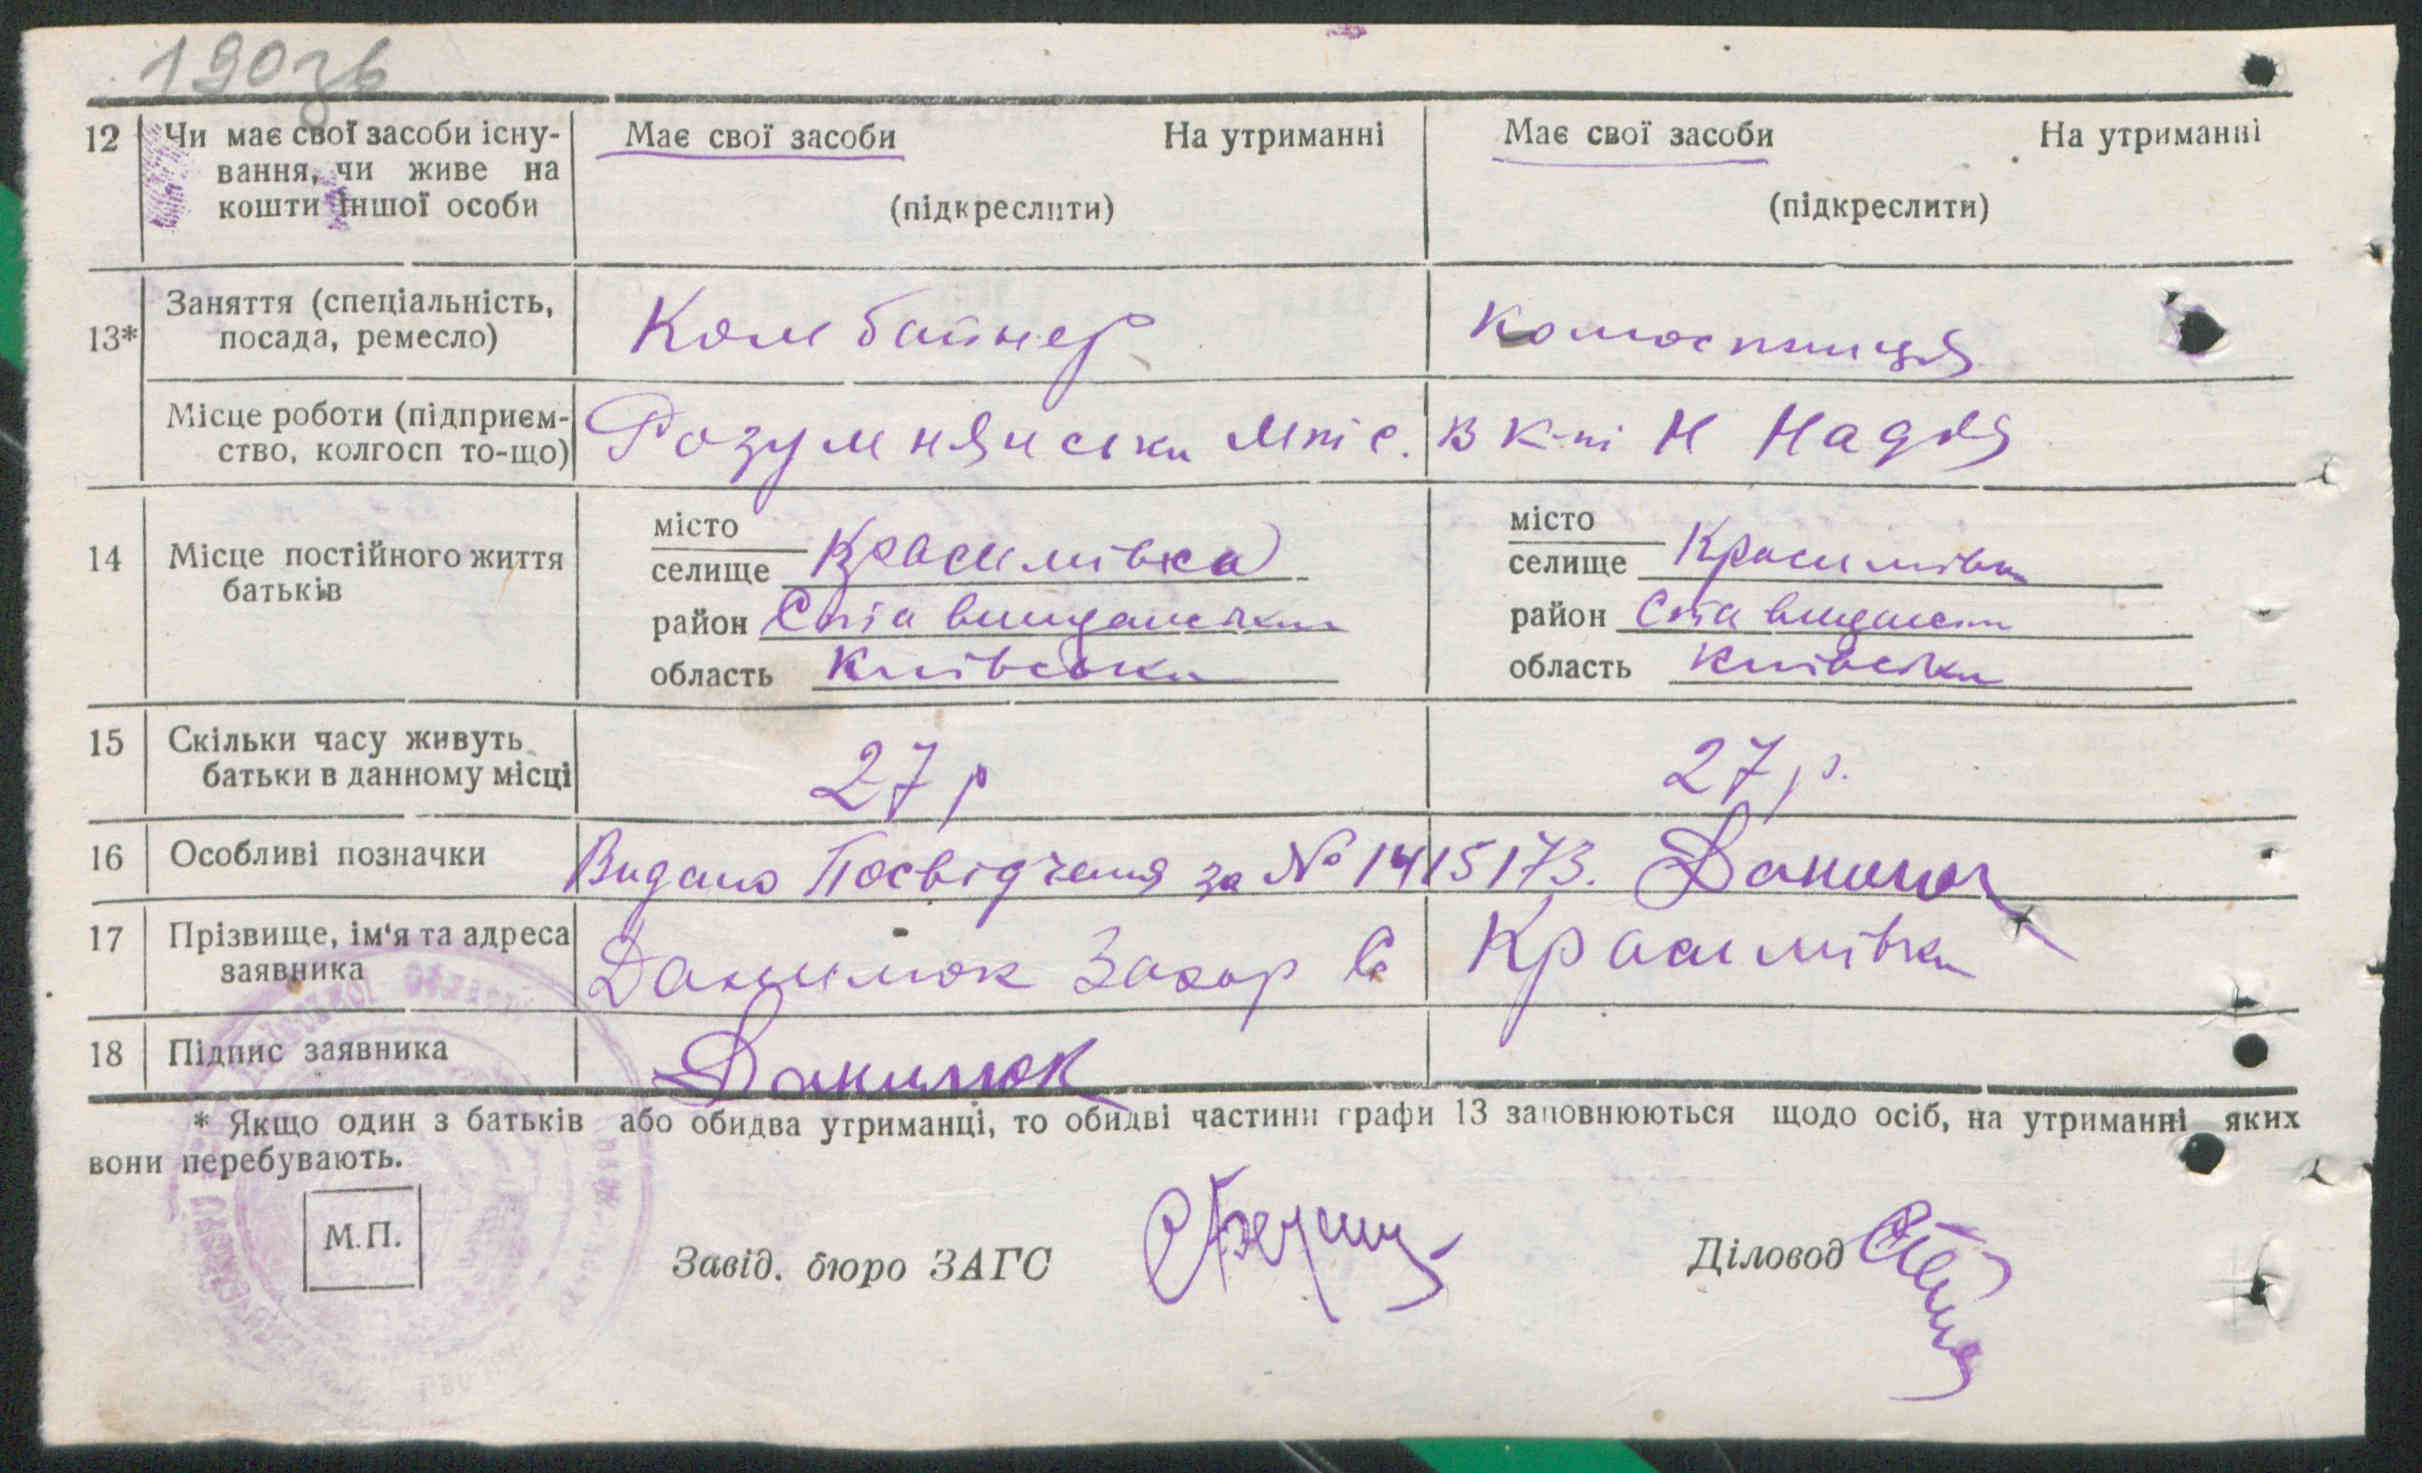 190зв
12 Чи має свої засоби існу- Має свої засоби На утриманні Має свої засоби На утриманні
вання, чи живе на
кошти іншої особи (підкреслити) (підкреслити)
13* Заняття (спеціальність, Комбайнер колоспниця
посада, ремесло)
Місце роботи (підприєм- Розумнянська мтс. в к-пі Н Надія
ство, колгосп то-що)
14 Місце постійного життя місто місто
батьків селище Красилівка селище Красилівка
район Ставищанськи район Ставищански
область Київська область Київська
15 Скільки часу живуть 27 р 27 р.
батьки в данному місці
16 Особливі позначки Видано Посвідченя за № 1415173. Данилюк
17 Прізвище, ім'я та адреса Данилюк Захар С Красилівка
заявника
18 Підпис заявника Данилюк
* Якщо один з батьків або обидва утриманці, то обидві частини графи 13 заповнюються щодо осіб, на утриманні яких
вони перебувають.
М.П.
Завід. бюро ЗАГС Діловод